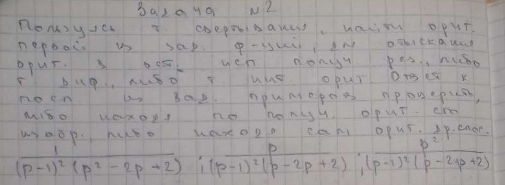 Задача №2
Пользуясь т свертывания, найти ориг.
первой из зад. ф-ции, для отыскания
ориг. в ост. исп получ рез, либо
т диф, либо т инт ориг Ответ к
посл из зад. примеров проверить,
либо находя по получ. ориг.
изобр, либо находя сам ориг. др. спос.
1 p p²
(p-1)²(p²-2p+2) ; (p-1)²(p-2p+2) ; (p-1)²(p-2p+2)